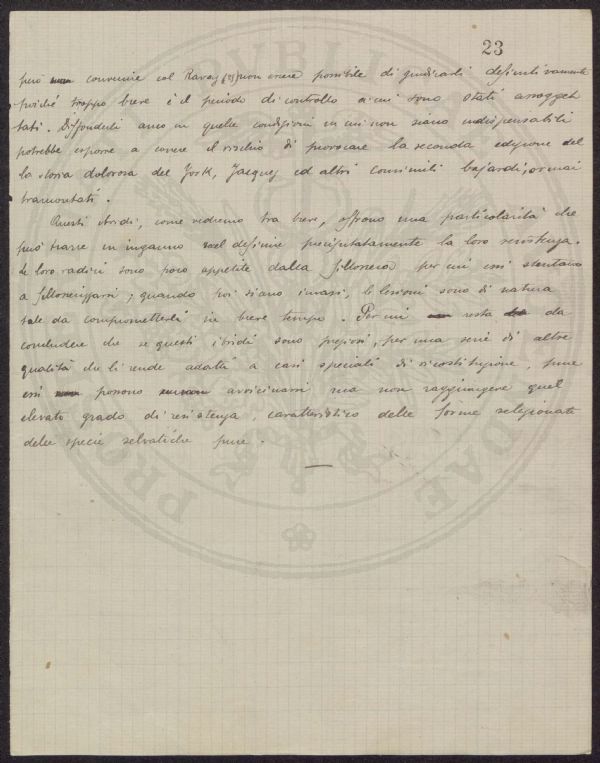 23
però convenire col Ravaz (3) non essere possibile di giudicarli definitivamente
poichè troppo breve è il periodo di controllo a cui sono stati assogget
tati. Diffonderli anco in quelle condizioni in cui non siano indispensabili
potrebbe esporre a correre il rischio di provocare la seconda edizione del
la storia dolorosa del York, Jacquez ed altri consimili bajardi, ormai
tramontati.
Questi ibridi, come vedremo tra breve, offrono una particolarità che
può trarre in inganno nel definire precipitatamente la loro resistenza.
Le loro radici sono poco appetite dalla fillossera per cui essi stentano
a fillosserizzarsi; quando poi siano invasi, le lesioni sono di natura
tale da comprometterli in breve tempo. Per cui resta da
concludere che se questi ibridi sono preziosi, per una serie di altre
qualità che li rende adatti a casi speciali di ricostituzione, pure
essi possono avvicinarsi ma non raggiungere quel
elevato grado di resistenza, caratteristico delle forme selezionate
delle specie selvatiche pure.
PVBLI
PRO
DAE